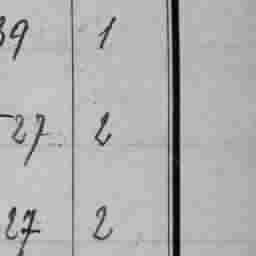 39 1
27 2
27 2